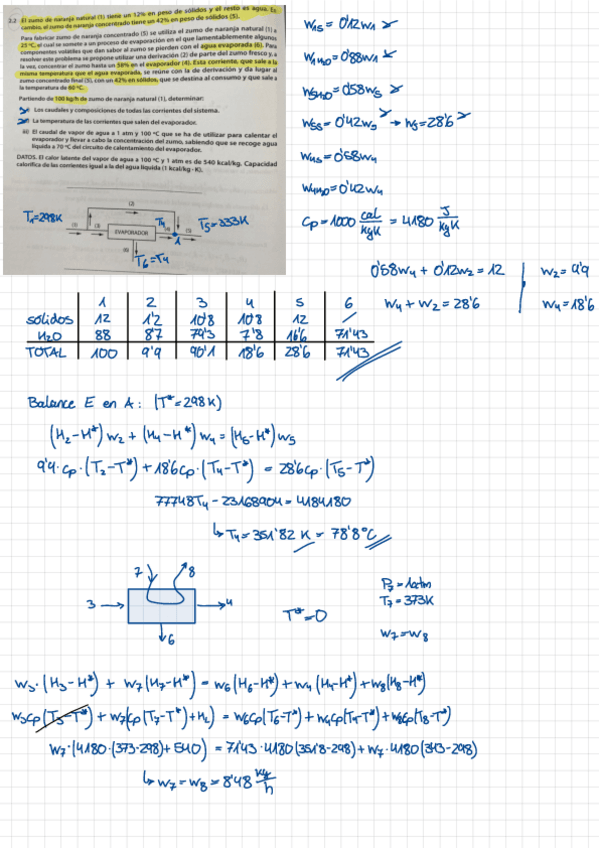 2.2 El zumo de naranja natural (1) tiene un 12% en peso de sólidos y el resto es agua. En
cambio, el zumo de naranja concentrado tiene un 42% en peso de sólidos (5).
Para fabricar zumo de naranja concentrado (5) se utiliza el zumo de naranja natural (1) a
25 ºC, el cual se somete a un proceso de evaporación en el que lamentablemente algunos
componentes volátiles que dan sabor al zumo se pierden con el agua evaporada (6). Para
resolver este problema se propone utilizar una derivación (2) de parte del zumo fresco y, a
la vez, concentrar el zumo hasta un 58% en el evaporador (4). Esta corriente, que sale a la
misma temperatura que el agua evaporada, se reúne con la de derivación y da lugar al
zumo concentrado final (5), con un 42% en sólidos, que se destina al consumo y que sale a
la temperatura de 60 ºC.
Partiendo de 100 kg/h de zumo de naranja natural (1), determinar:
Los caudales y composiciones de todas las corrientes del sistema.
La temperatura de las corrientes que salen del evaporador.
iii) El caudal de vapor de agua a 1 atm y 100 ºC que se ha de utilizar para calentar el
evaporador y llevar a cabo la concentración del zumo, sabiendo que se recoge agua
líquida a 70 ºC del circuito de calentamiento del evaporador.
DATOS. El calor latente del vapor de agua a 100 ºC y 1 atm es de 540 kcal/kg. Capacidad
calorífica de las corrientes igual a la del agua líquida (1 kcal/kg · K).
(2)
T1=298K
T4
T5=333K
(1) (3) EVAPORADOR (4) (5)
1
(6)
T6=T4
W1S = 0'12W1
W1H2O = 0'88W1
W5H2O = 0'58W5
W5S = 0'42W5 → W5 = 28'6
W4S = 0'58W4
W4H2O = 0'42W4
Cp = 1000 cal/kgK = 4180 J/kgK
0'58W4 + 0'12W2 = 12
W2 = 9'9
W4 + W2 = 28'6
W4 = 18'6
1 2 3 4 5 6
SÓLIDOS 12 1'2 10'8 10'8 12
H2O 88 8'7 79'3 7'8 16'6 71'43
TOTAL 100 9'9 90'1 18'6 28'6 71'43
Balance E en A: (T*=298K)
(H2-H*)W2 + (H4-H*)W4 = (H5-H*)W5
9'9·Cp·(T2-T*) + 18'6Cp·(T4-T*) = 28'6Cp·(T5-T*)
77748T4 - 23168904 = 4184180
↳ T4 = 351'82 K = 78'8ºC
7 8
3 4
6
T*=0
P7 = 1atm
T7 = 373K
W7 = W8
W3·(H3-H*) + W7(H7-H*) = W6(H6-H*) + W4(H4-H*) + W8(H8-H*)
W3Cp(T3-T*) + W7(Cp(T7-T*)+HL) = W6Cp(T6-T*) + W4Cp(T4-T*) + W8Cp(T8-T*)
W7·(4180·(373-298)+540) = 71'43·4180(351'8-298) + W7·4180(343-298)
↳ W7 = W8 = 8'48 kg/h